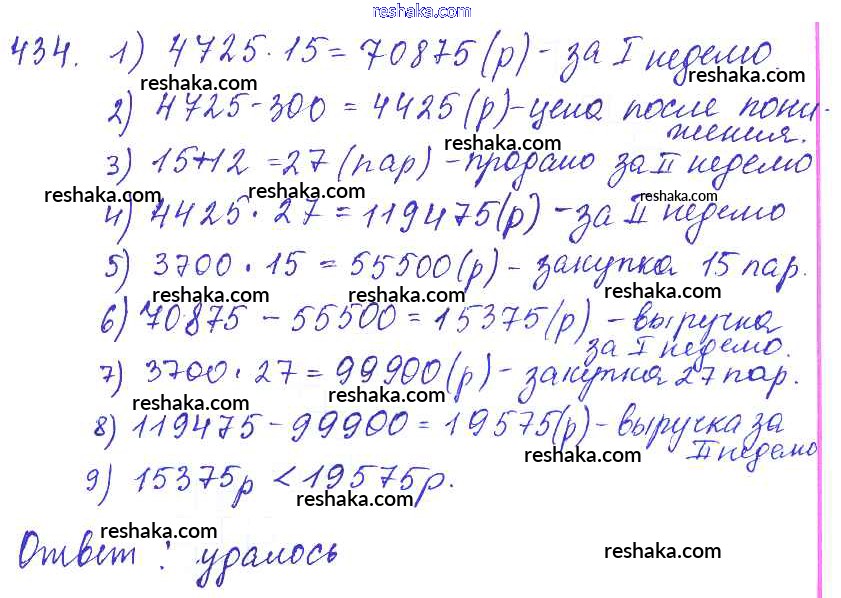 reshaka.com
434. 1) 4725 · 15 = 70875 (р) - за I неделю
reshaka.com reshaka.com
2) 4725 - 300 = 4425 (р) - цена после пони-
жения.
reshaka.com
3) 15 + 12 = 27 (пар) - продано за II неделю
reshaka.com reshaka.com reshaka.com
4) 4425 · 27 = 119475 (р) - за II неделю
5) 3700 · 15 = 55500 (р) - закупка 15 пар.
reshaka.com reshaka.com reshaka.com
6) 70875 - 55500 = 15375 (р) - выручка
за I неделю.
reshaka.com reshaka.com
7) 3700 · 27 = 99900 (р) - закупка 27 пар.
reshaka.com reshaka.com
8) 119475 - 99900 = 19575 (р) - выручка за
II неделю
reshaka.com reshaka.com
9) 15375р < 19575р.
reshaka.com
reshaka.com
Ответ : удалось
reshaka.com